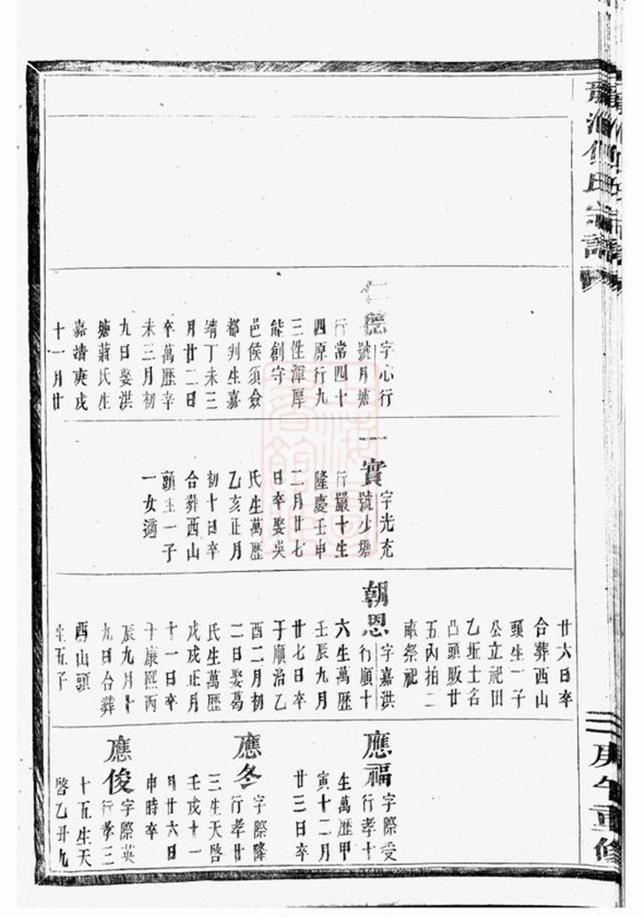 氏宗譜
庚午重修
德 字心行
號月塘
行常四十
四原行九
三性渾厚
能創守
邑侯須僉
都判生嘉
靖丁未三
月廿二日
卒萬歷辛
未三月初
九日娶洪
塘蔣氏生
嘉靖庚戌
十一月廿
一實 字光充
號少塘
行嚴十生
隆慶壬申
二月廿七
日卒娶吳
氏生萬歷
乙亥正月
初十日卒
合葬西山
頭生一子
一女適
廿六日卒
合葬西山
頭生一子
公立祀田
乙坵土名
凸頭畈廿
五內拍二
畝祭祀
朝恩 字嘉洪
行順十
六生萬歷
壬辰九月
廿七日卒
于順治乙
酉二月初
二日娶葛
氏生萬歷
戊戌正月
十一日卒
于康熙丙
辰九月十
九日合葬
酉山頭
生五子
應福 字際受
行孝十
生萬歷甲
寅十二月
廿三日卒
應冬 字際隆
行孝廿
三生天啓
壬戌十一
月廿六日
申時卒
應俊 字際英
行孝三
十五生天
啓乙丑九